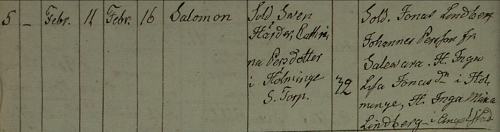 5 - Febr. 11 Febr. 16 Salomon Sold. Swen
Härder, Cathri,
na Persdotter
i Holminge
S. Torp.
32
Sold. Jonas Lindberg
Johannes Persson fr
H. Inga
Lisa Jonæ Dr. i Hol,
minge, H. Inga Maria
Lindberg